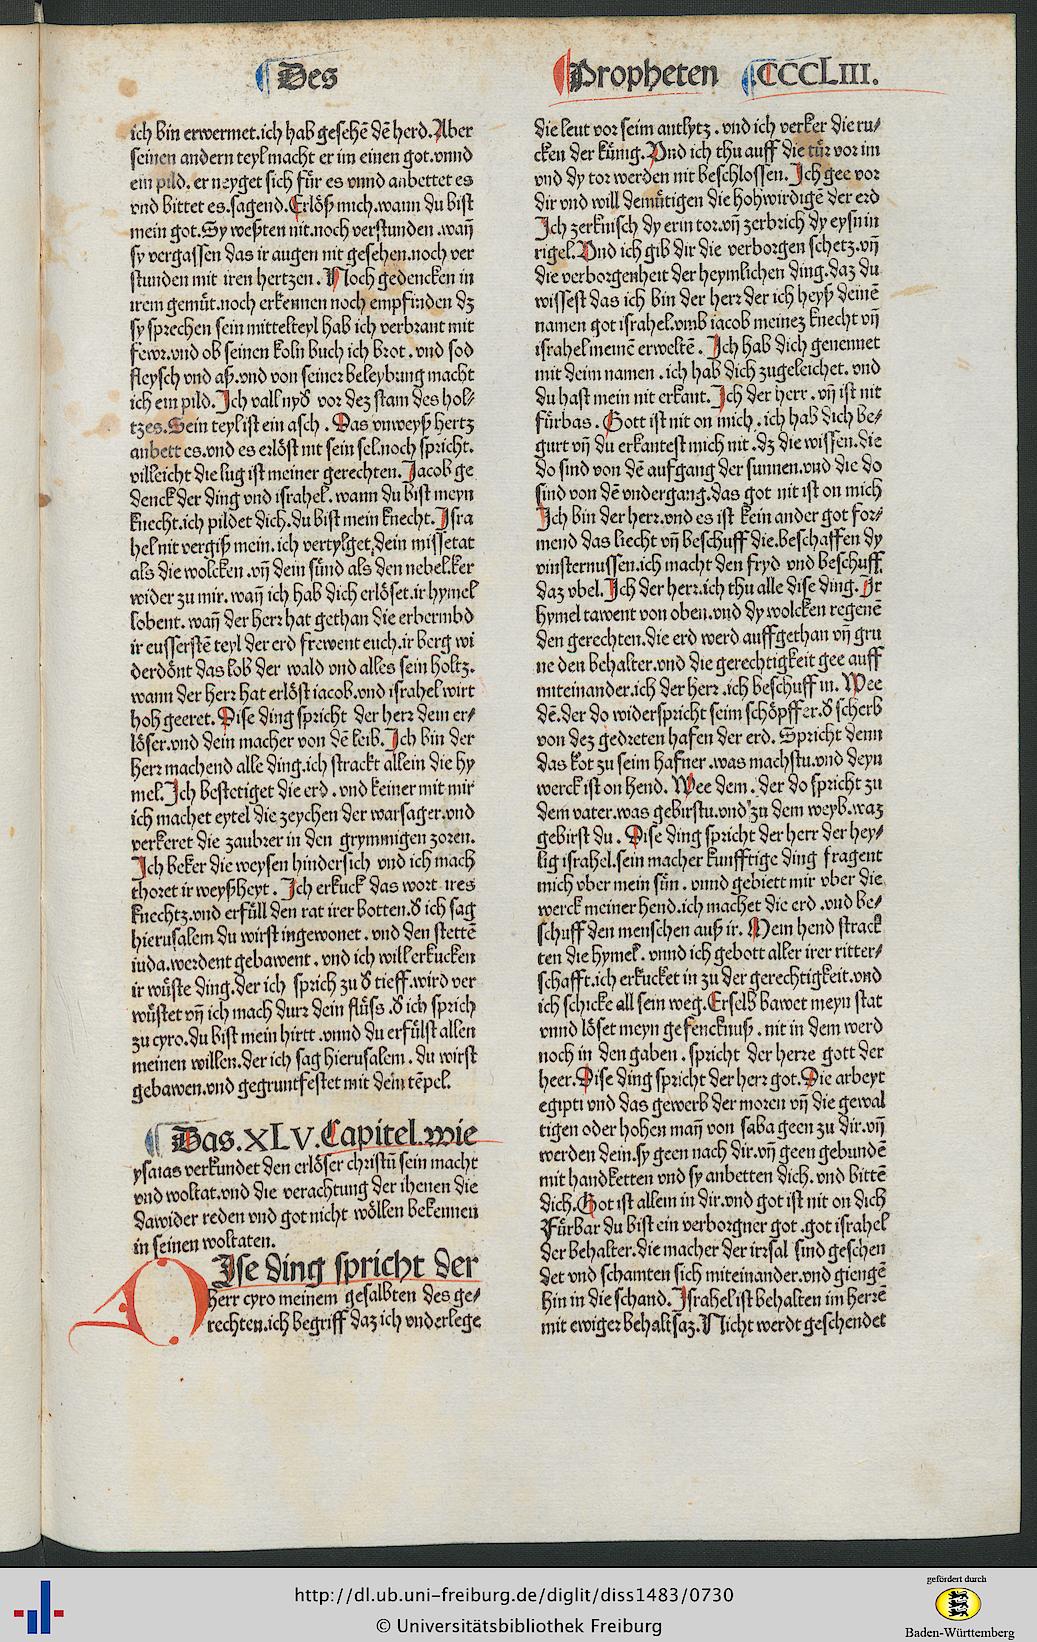 Des
Propheten CCCLIII.
ich bin erwermet.ich hab gesehē dē herd.Aber
seinen andern teyl macht er im einen got.vnnd
ein pild. er neyget sich für es vnnd anbettet es
vnd bittet es.sagend.Erlöß mich.wann du bist
mein got.Sy weßten nit.noch verstunden .wañ
sy vergassen das ir augen nit gesehen.noch ver
stunden mit iren hertzen . Noch gedencken in
irem gemüt.noch erkennen noch empfinden dz
sy sprechen sein mittelteyl hab ich verbrant mit
fewr.vnd ob seinen koln buch ich brot . vnd sod
fleysch vnd aß.vnd von seiner beleybung macht
ich ein pild. Ich vall nyd vor dez stam des hol-
tzes.Sein teyl ist ein asch . Das vnweyß hertz
anbett es.vnd es erlöst nit sein sel.noch spricht.
villeicht die lug ist meiner gerechten. Jacob ge
denck der ding vnd israhel. wann du bist meyn
knecht.ich pildet dich.du bist mein knecht. Isra
hel nit vergiß mein. ich vertylget dein missetat
als die wolcken .vñ dein sünd als den nebel.ker
wider zu mir. wañ ich hab dich erlöset.ir hymel
lobent. wañ der herr hat gethan die erbermbd
ir eussserstē teyl der erd frewent euch.ir berg wi
derdönt das lob der wald vnd alles sein holtz.
wann der herr hat erlöst iacob.vnd israhel wirt
hoh geeret. Dise ding spricht der herr dem er-
löser.vnd dein macher von dē leib. Ich bin der
herr machend alle ding.ich strackt allein die hy
mel.Ich bestetiget die erd . vnd keiner mit mir
ich machet eytel die zeychen der warsager.vnd
verkeret die zaubrer in den grymmigen zoren.
Ich beker die weysen hindersich vnd ich mach
thoret ir weyßheyt . Ich erkuck das wort ires
knechtz.vnd erfüll den rat irer botten.d ich sag
hierusalem du wirst ingewonet . vnd den stettē
iuda.werdent gebawent . vnd ich will erkucken
ir wüste ding.der ich sprich zu d tieff.wird ver
wüstet vñ ich mach durr dein flüss . d ich sprich
zu cyro.du bist mein hirtt .vnnd du erfülst allen
meinen willen.der ich sag hierusalem . du wirst
gebawen.vnd gegruntfestet mit dein tēpel.
Das.XLV.Capitel.wie
ysaias verkundet den erlöser christū sein macht
vnd woltat.vnd die verachtung der ihenen die
dawider reden vnd got nicht wöllen bekennen
in seinen woltaten.
DIse ding spricht der
herr cyro meinem gesalbten des ge-
rechten.ich begriff daz ich vnderlege
die leut vor seim antlytz . vnd ich verker die ru-
cken der künig. Vnd ich thu auff die tür vor im
vnd dy tor werden nit beschlossen. Ich gee vor
dir vnd will demütigen die hohwirdigē der erd
Ich zerknisch dy erin tor.vñ zerbrich dy eysnin
rigel.Vnd ich gib dir die verborgen schetz.vñ
die verborgenheit der heymlichen ding.daz du
wissest das ich bin der herr der ich heyß deinē
namen got israhel.vmb iacob meinez knecht vñ
israhel meinē erweltē . Ich hab dich genennet
mit deim namen . ich hab dich zugeleichet. vnd
du hast mein nit erkant. Ich der herr . vñ ist nit
fürbas . Gott ist nit on mich . ich hab dich be-
gurt vñ du erkantest mich nit .dz die wissen.die
do sind von dē aufgang der sunnen.vnd die do
sind von dē vndergang.das got nit ist on mich
Ich bin der herr.vnd es ist kein ander got for-
mend das liecht vñ beschuff die.beschaffen dy
vinsternussen.ich macht den fryd vnd beschuff.
daz vbel. Ich der herr.ich thu alle dise ding. Ir
hymel tawent von oben.vnd dy wolcken regenē
den gerechten.die erd werd auffgethan vñ gru
ne den behalter.vnd die gerechtigkeit gee auff
miteinander.ich der herr .ich beschuff in. Wee
dē.der do widerspricht seim schöpffer.d scherb
von dez gedreten hafen der erd. Spricht denn
das kot zu seim hafner .was machstu.vnd deyn
werck ist on hend. Wee dem . der do spricht zu
dem vater.was gebirstu.vnd zu dem weyb.waz
gebirst du . Dise ding spricht der herr der hey-
lig israhel.sein macher kunfftige ding fragent
mich vber mein sün . vnnd gebiett mir vber die
werck meiner hend.ich machet die erd .vnd be-
schuff den menschen auß ir. Mein hend strack
ten die hymel . vnnd ich gebott aller irer ritter-
schafft.ich erkucket in zu der gerechtigkeit.vnd
ich schicke all sein weg.Er selb bawet meyn stat
vnnd löset meyn gefencknuß . nit in dem werd
noch in den gaben . spricht der herre gott der
heer.Dise ding spricht der herr got.Die arbeyt
egipti vnd das gewerb der moren vñ die gewal
tigen oder hohen mañ von saba geen zu dir.vñ
werden dein.sy geen nach dir.vñ geen gebundē
mit handketten vnd sy anbetten dich. vnd bittē
dich.Got ist allein in dir.vnd got ist nit on dich
Fürbar du bist ein verborgner got .got israhel
der behalter.die macher der irrsal sind geschen
det vnd schamten sich miteinander.vnd giengē
hin in die schand. Israhel ist behalten im herrē
mit ewiger behaltsaz.Nicht werdt geschendet
http://dl.ub.uni-freiburg.de/diglit/diss1483/0730
© Universitätsbibliothek Freiburg
gefördert durch
Baden-Württemberg